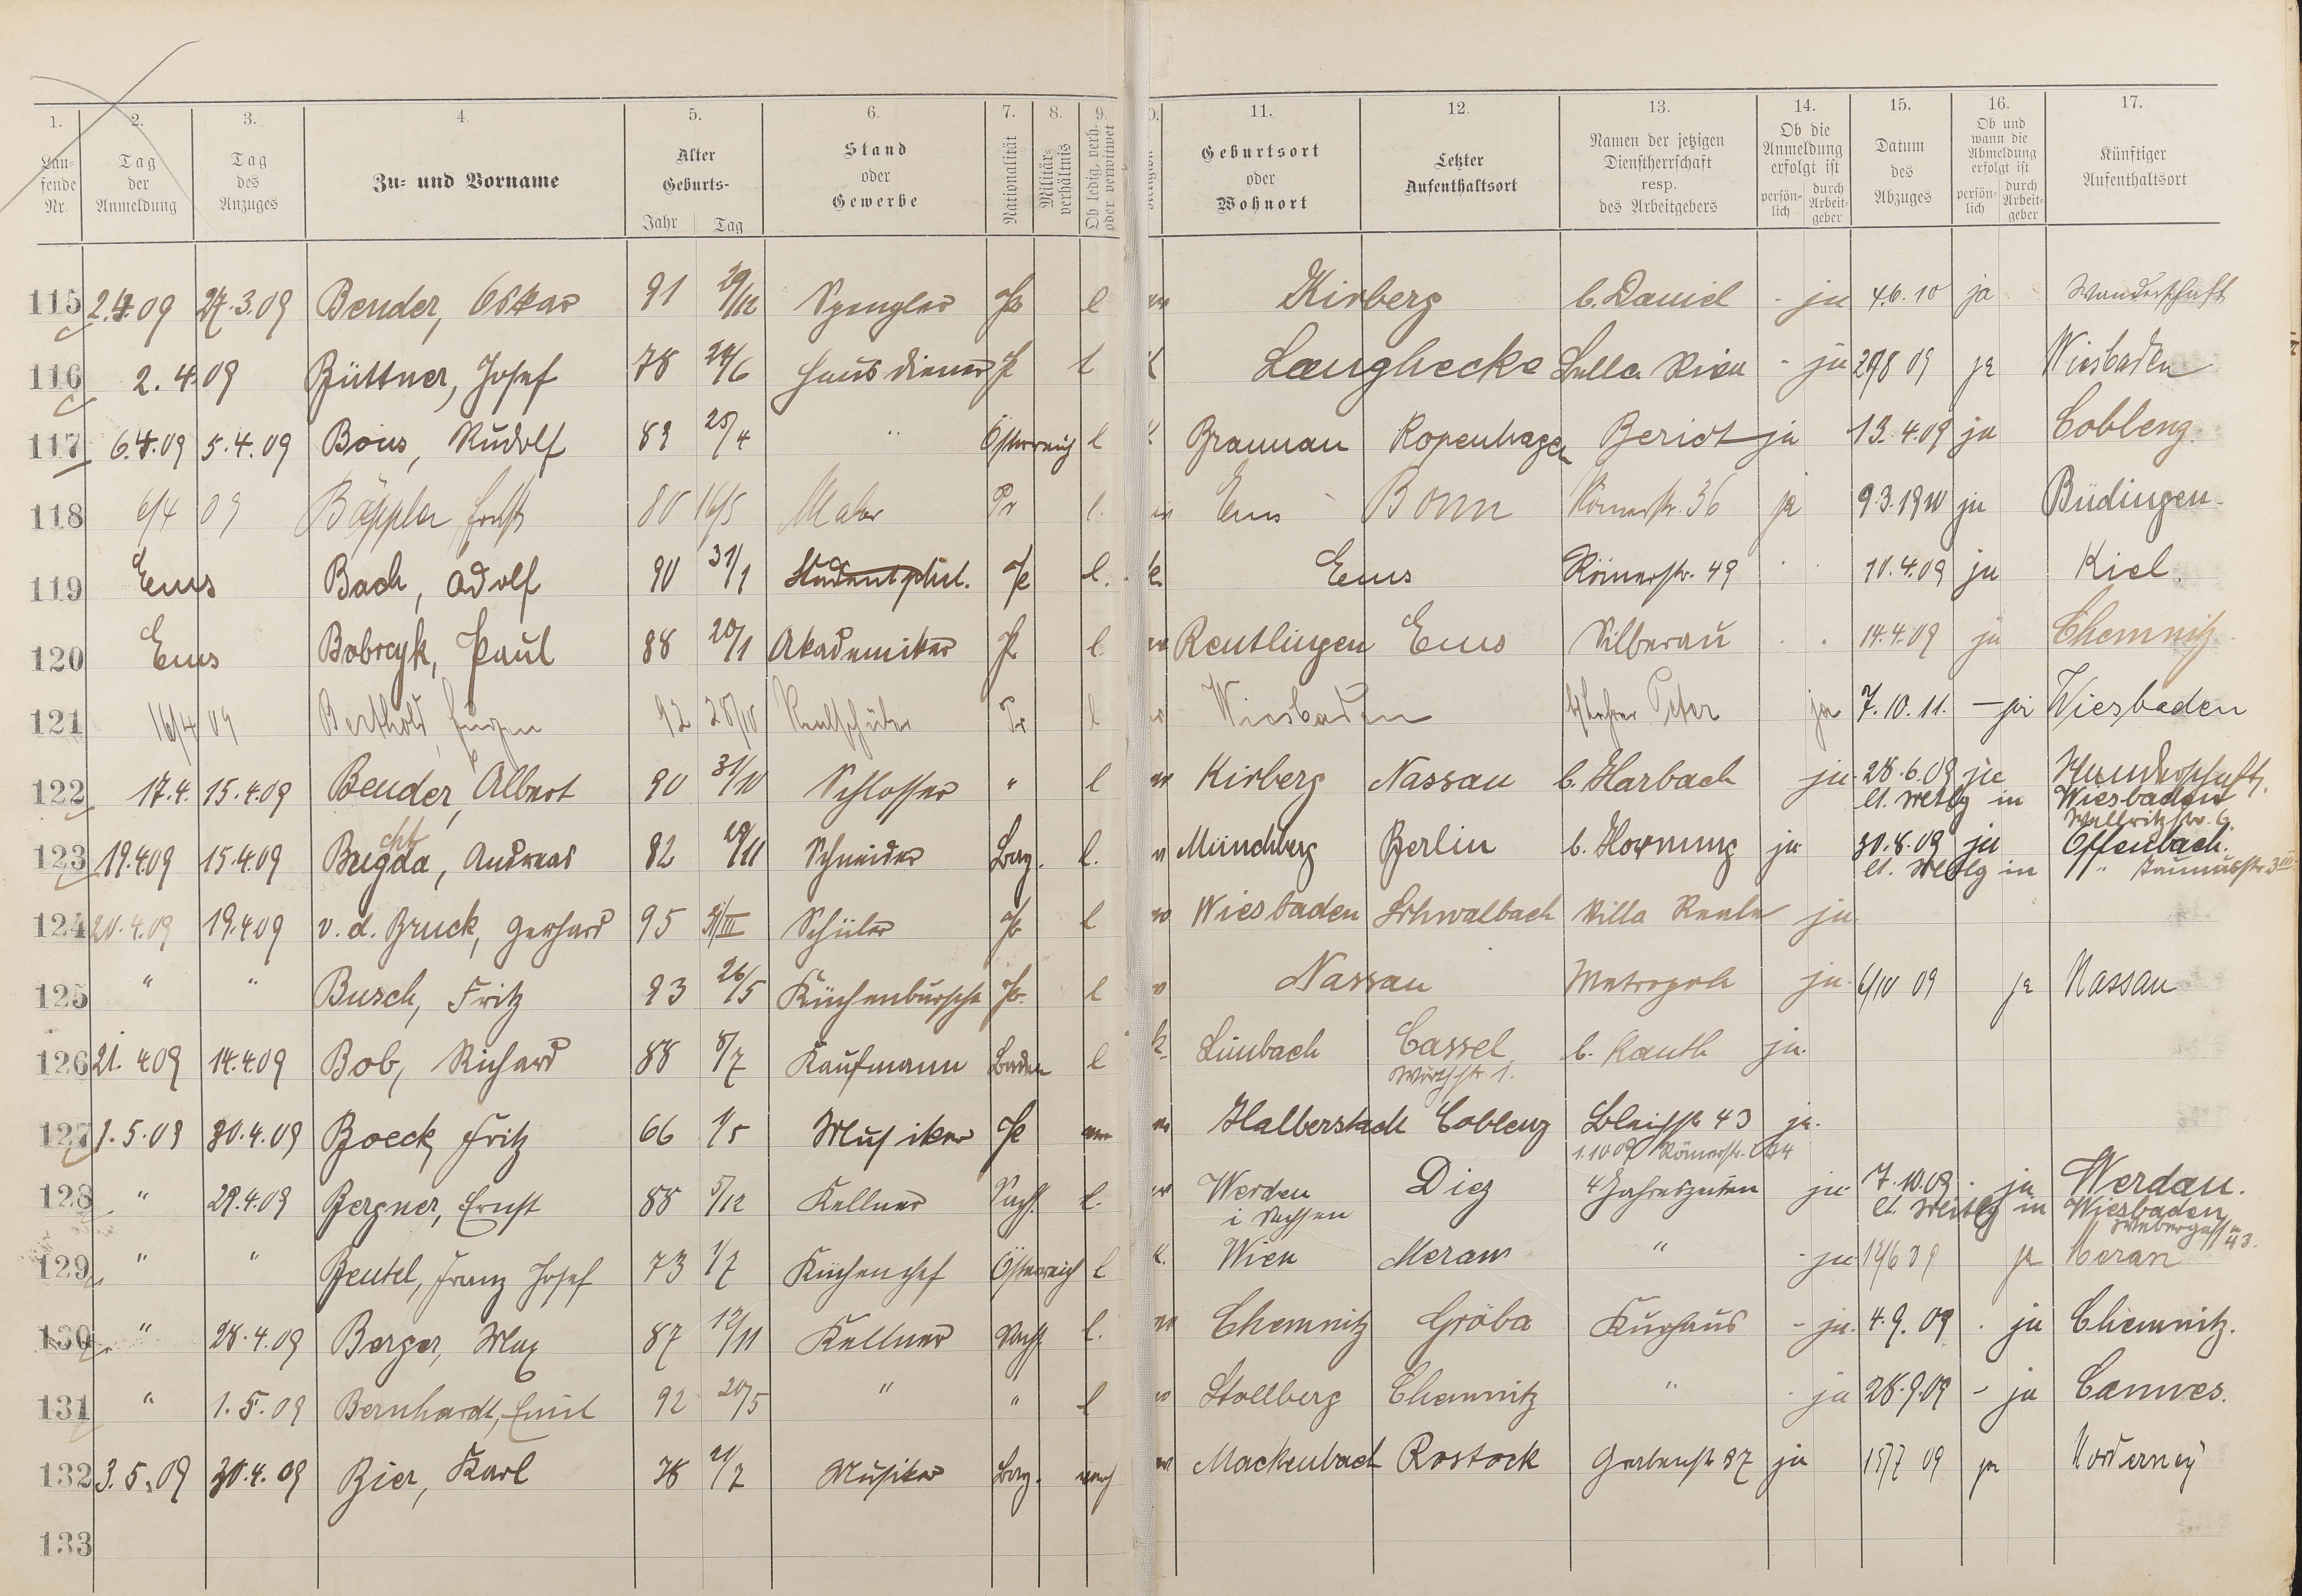 1. 2. 3. 4. 5. 6. 7. 8. 9. 11. 12. 13. 14. 15. 16. 17.
Laufende Nr. Tag der Anmeldung Tag des Anzuges Zu- und Vorname Alter Geburts- Jahr Tag Stand oder Gewerbe Nationalität Militär-verhältnis Ob ledig, verh. oder verwitwet Geburtsort oder Wohnort Letzter Aufenthaltsort Namen der jetzigen Dienstherrschaft resp. des Arbeitgebers Ob die Anmeldung erfolgt ist persönlich durch Arbeitgeber Datum des Abzuges Ob und wann die Abmeldung erfolgt ist persönlich durch Arbeitgeber Künftiger Aufenthaltsort
115 2.4.09 27.3.09 Bender, Oskar 91 29/12 Spengler Pr l Kirberg b. Daniel - ja 4.6.10 ja Wanderschaft
116 2.4.09 Büttner, Josef 78 24/6 Hausdiener Pr l Langhecke - ja 29/8 09 ja Wiesbaden
117 6.4.09 5.4.09 Bous, Rudolf 89 25/4 " Österreich l Braunau Kopenhagen Beriot ja 13.4.09 ja Coblenz
118 6/4 09 Bäppler Ernst 80 16/5 Maler Pr l. Ems Bonn Römerstr. 36 ja 9.3.1910 ja Büdingen
119 Ems Bach, Adolf 90 31/1 Student phil. Pr l. k. Ems Römerstr. 49 10.4.09 ja Kiel.
120 Ems Bobrcyk, Paul 88 20/1 Akademiker Pr l. Reutlingen Ems Silberau 14.4.09 ja Chemnitz
121 16/4 09 Berthold, Eugen 92 28/10 Realschüler Pr l Wiesbaden Peter ja 7.10.11. - ja Wiesbaden
122 17.4. 15.4.09 Bender, Albert 90 31/10 Schlosser " l Kirberg Nassau b. Harbach ja 28.6.09 ja Wanderschaft.
in Wiesbaden
Wellritzstr. 6.
123 19.4.09 15.4.09 Brigda, Andreas 82 Schneider Bay. l. Münchberg Berlin b. Hornung ja 30.8.09 ja Offenbach.
cht
in " Taunusstr. 3 III
124 20.4.09 19.4.09 v. d. Bruck, Gerhard 95 Schüler Pr l Wiesbaden Schwalbach Villa Reale ja
125 " " Busch, Fritz 93 26/5 Küchenbursche Pr. l Nassau Metropole ja 6/10 09 ja Nassau
126 21.4.09 14.4.09 Bob, Richard 88 8/7 Kaufmann Baden l k. Limbach Cassel, b. Kauth ja.
Wörthstr. 1.
127 1.5.09 30.4.09 Boeck, Fritz 66 1/5 Musiker Pr Halberstadt Coblenz Bleichstr 43 ja.
1.10 09 Römerstr. 84
128 " 29.4.09 Bergner, Ernst 88 5/12 Kellner Sachs. l. Werden Diez 4 Jahreszeiten ja 7.10.09 - ja Werdau.
i Sachsen in Wiesbaden
Webergasse 43.
129 " " Beutel, Franz Josef 73 1/7 Küchenchef Österreich l. k. Wien Meran " - ja 14/6 09 ja Meran
130 " 28.4.09 Berger, Max 87 12/11 Kellner Sachs. l. Chemnitz Gröba Kurhaus - ja. 4.9.09 . ja Chemnitz.
131 " 1.5.09 Bernhardt, Emil 92 20/5 " " l Stollberg Chemnitz " - ja 28.9.09 - ja Cannes.
132 3.5.09 30.4.09 Bier, Karl 78 21/7 Musiker Bay. verh Mackenbach Rostock Grabenstr 37 ja 15/7 09 ja Norderney
133